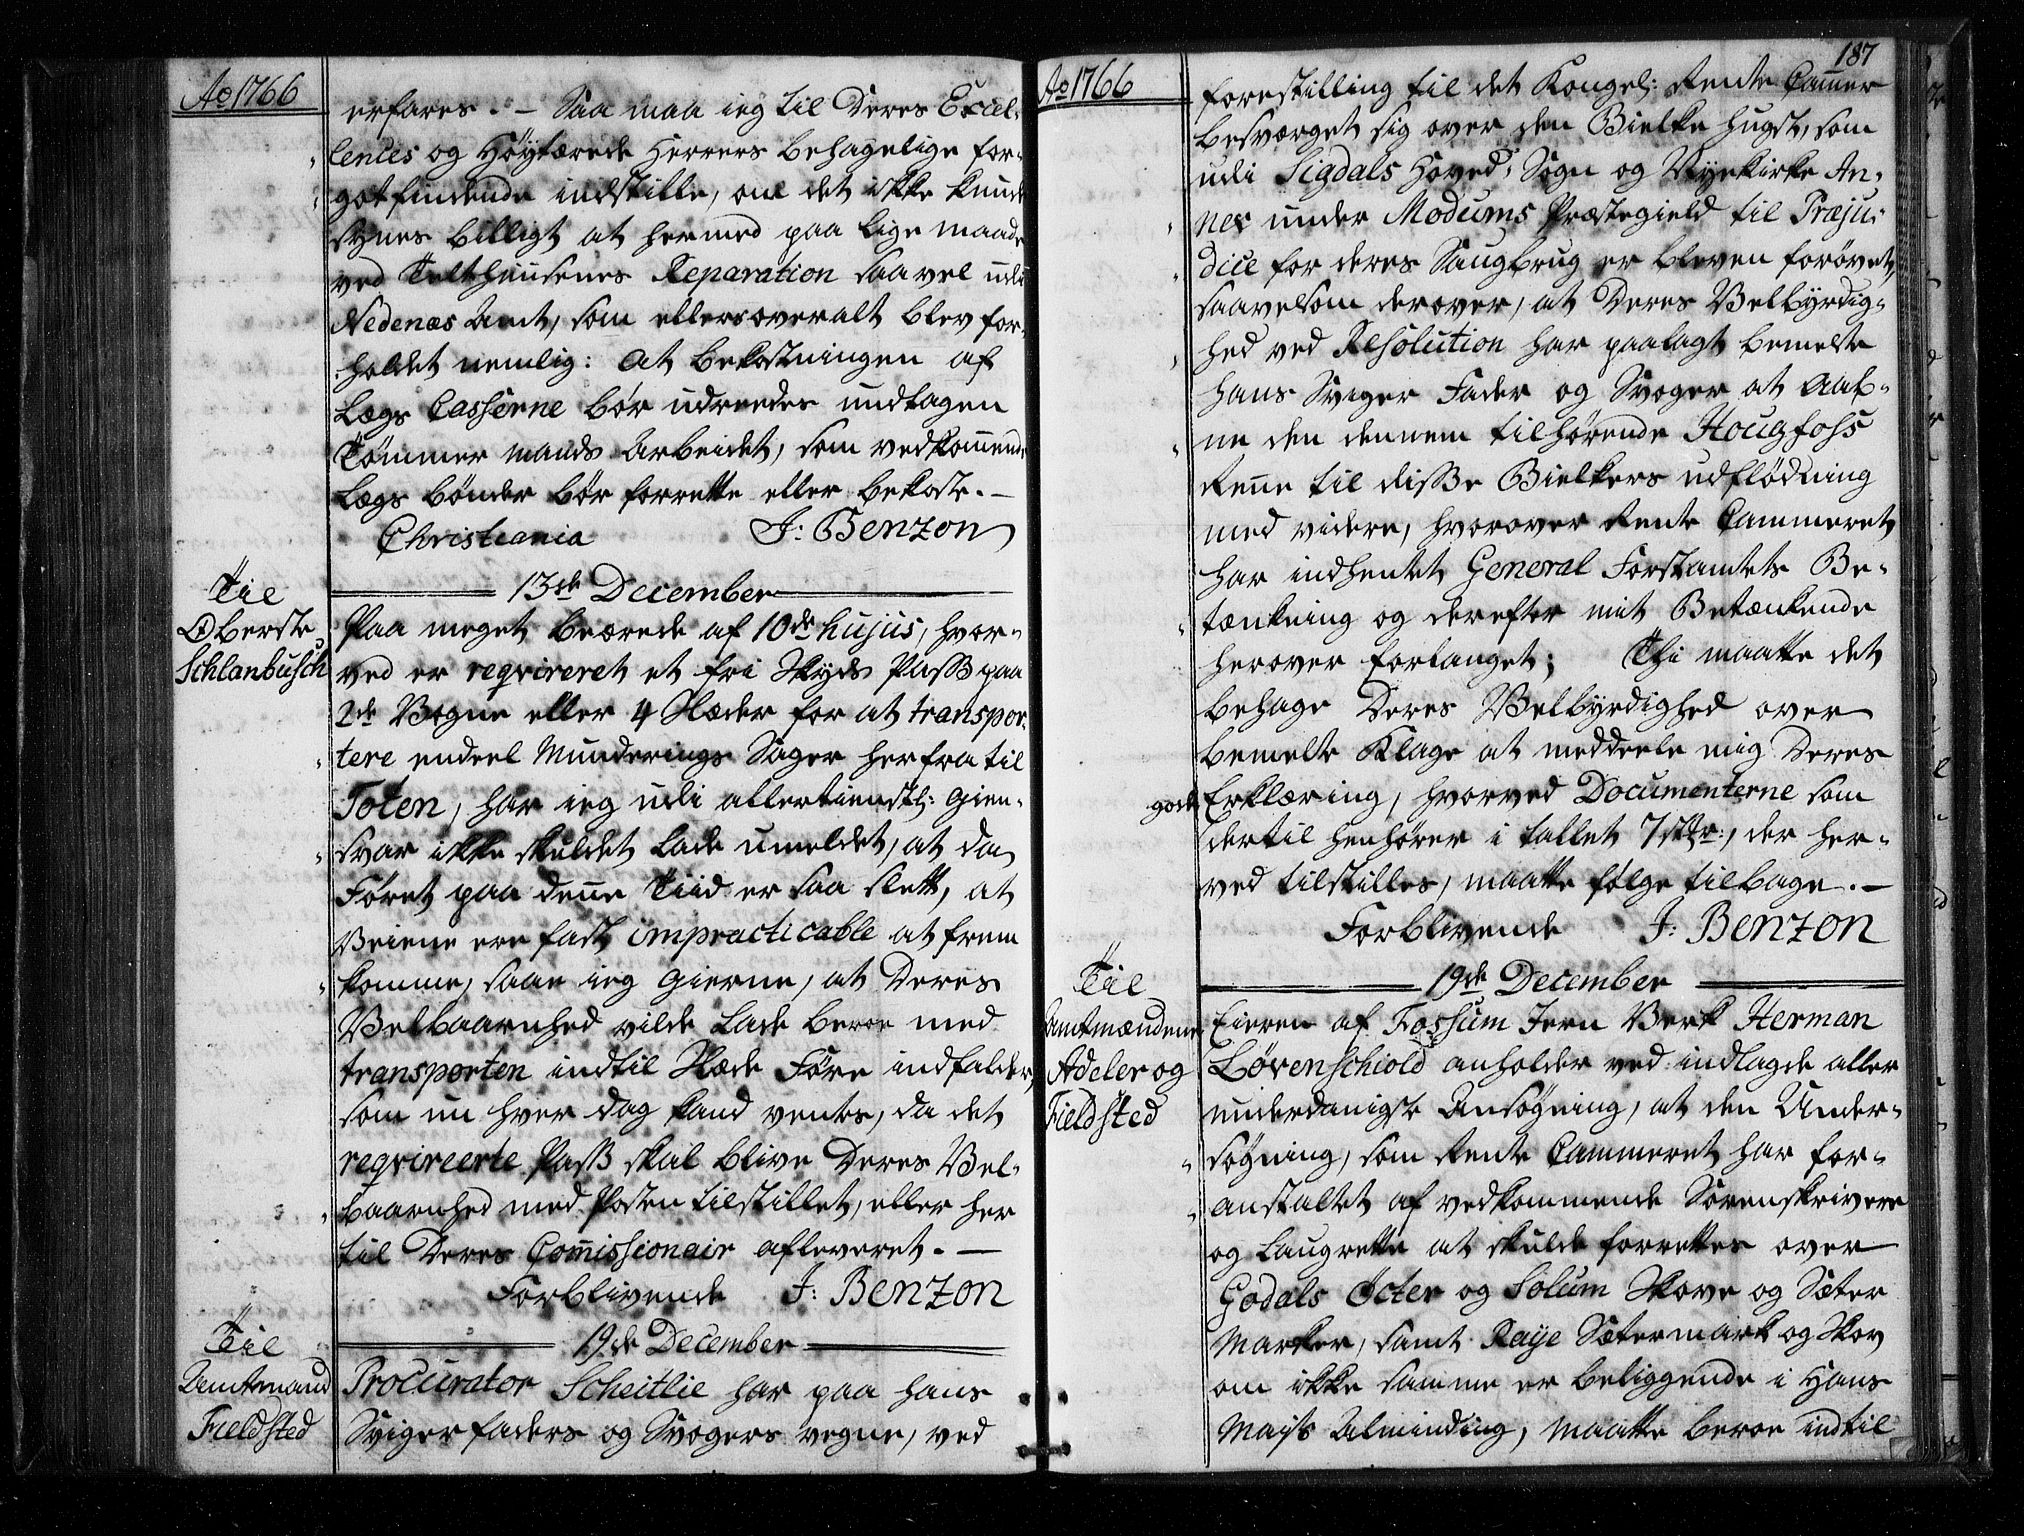 Ao 1766
erfares. – Saa maa ieg til Deres Excel-
lences og Høytærede Herrers behagelige for-
gotfindende indstille, om det ikke kunde
synes billigt at hermed paa lige maade
ved Telthuusenes Reparation saavel udi
Nedenæs Amt, som ellers overalt blev for-
holdet nemlig: at bekostningen af
Lægs Casserne bør udreedes undtagen
Tømmermands Arbeidet, som vedkommende
Lægs bønder bør forrette eller bekoste. –
Christiania J: Benzon
13de December
Til
Oberste
Schlanbusch
Paa meget beærede af 10de hujus, hvor-
ved er reqvireret et frie Skyds Pass paa
2de Vogne eller 4 Slæder for at transpor-
tere endeel Munderings Sager herfra til
Toten, har ieg udi allertienstl: Gien-
svar ikke skuldet lade umeldet, at da
Føret paa denne Tiid er saa slett, at
Veiene ere fast impracticable at frem
komme, saae ieg gierne, at Deres
Velbaarnhed vilde lade beroe med
transporten indtil Slæde Føre indfalder,
som nu hver dag kand ventes, da det
reqvireerte Pass skal blive Deres Vel-
baarnhed med Posten tilstillet, eller her
til Deres Commissionair afleveret. –
Forblivende J: Benzon
19de December
Til
Amtmand
Fieldsted
Procurator Scheitlie har paa hans
Svigerfaders og Svogers vegne, ved
187
Ao 1766
forestilling til det Kongel: Rente Cammer
besværget sig over den Bielke hugst, som
udi Sigdals Hoved-Sogn og Nykirke An-
nex under Modums Præstegield til Præju-
dice for deres Saugbrug er bleven forøvet,
saavelsom derover, at Deres Velbyrdig-
hed ved Resolution har paalagt bemelte
hans Sviger Fader og Svoger at aab-
ne den dennem tilhørende Hougfoss
Renne til disse Bielkers udflødning
med videre, hvorover Rente Cammeret
har indhentet General Forstamtets Be-
tænkning og derefter mit Betænkende
herover forlanget; Thi maatte det
behage Deres Velbyrdighed over
bemelte Klage at meddeele mig Deres
gode Erklæring, hvorved Documenterne som
dertil henhører i tallet 7 stkr:, der her-
ved tilstilles, maatte følge tilbage. –
Forblivende J: Benzon
19de December
Til
Amtmændene
Adeler og
Fieldsted
Eieren af Fossum Jern Verk Herman
Løvenschiold anholder ved indlagde aller
underdanigste Ansøgning, at den Under-
søgning, som Rente Cammeret har for-
anstaltet af vedkommende Sorenskrivere
og Laugrette at skulde forrettes over
Godals Octer og Solum Skove og Sæter
Marker, samt Raye Sætermark og Skov
om ikke samme er beliggende i Hans
Mayts Alminding, maatte beroe indtil